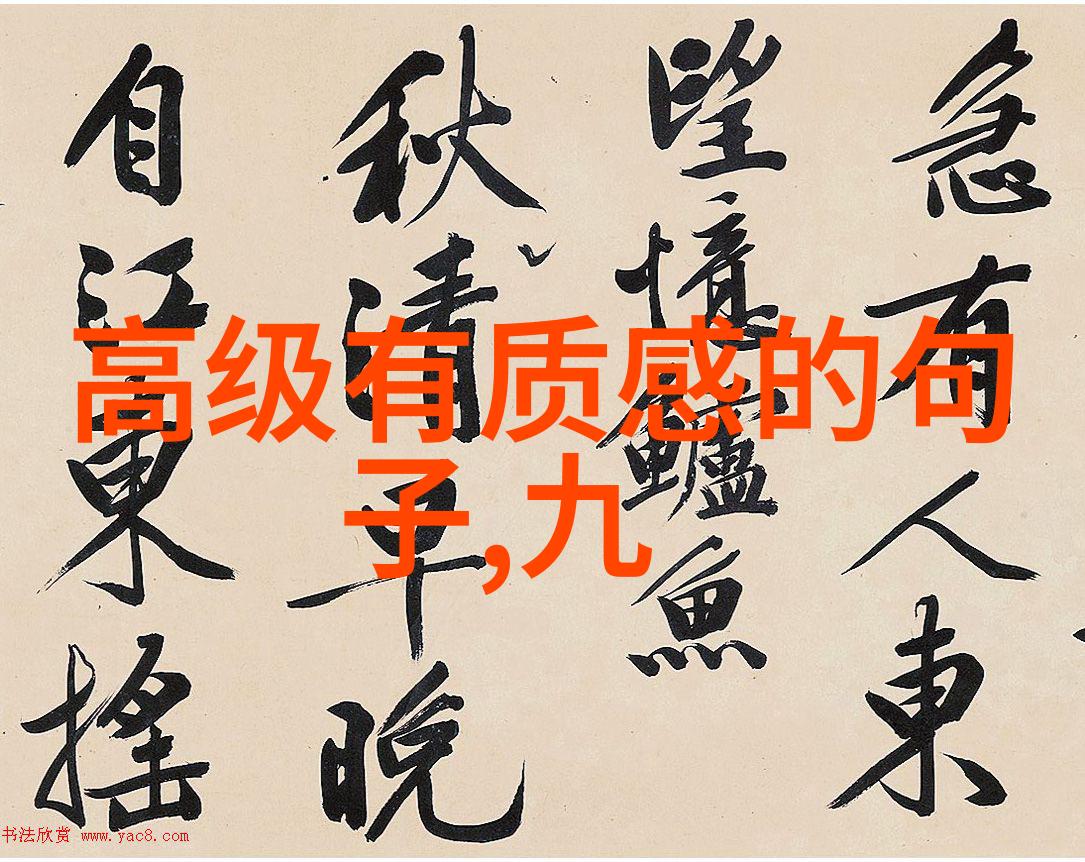 高级有质感的句
子,九
急有人東
望憶鱸魚
秋清早晚
自江東搖
书法欣赏 www.yac8.com